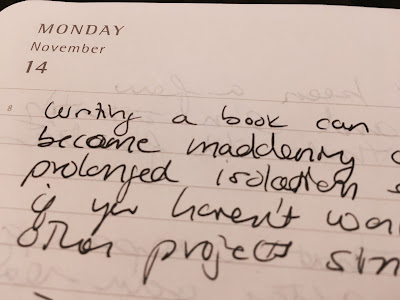 MONDAY
November
14
8
writing a book can
become maddening
prolonged isolation
if you haven't
other projects